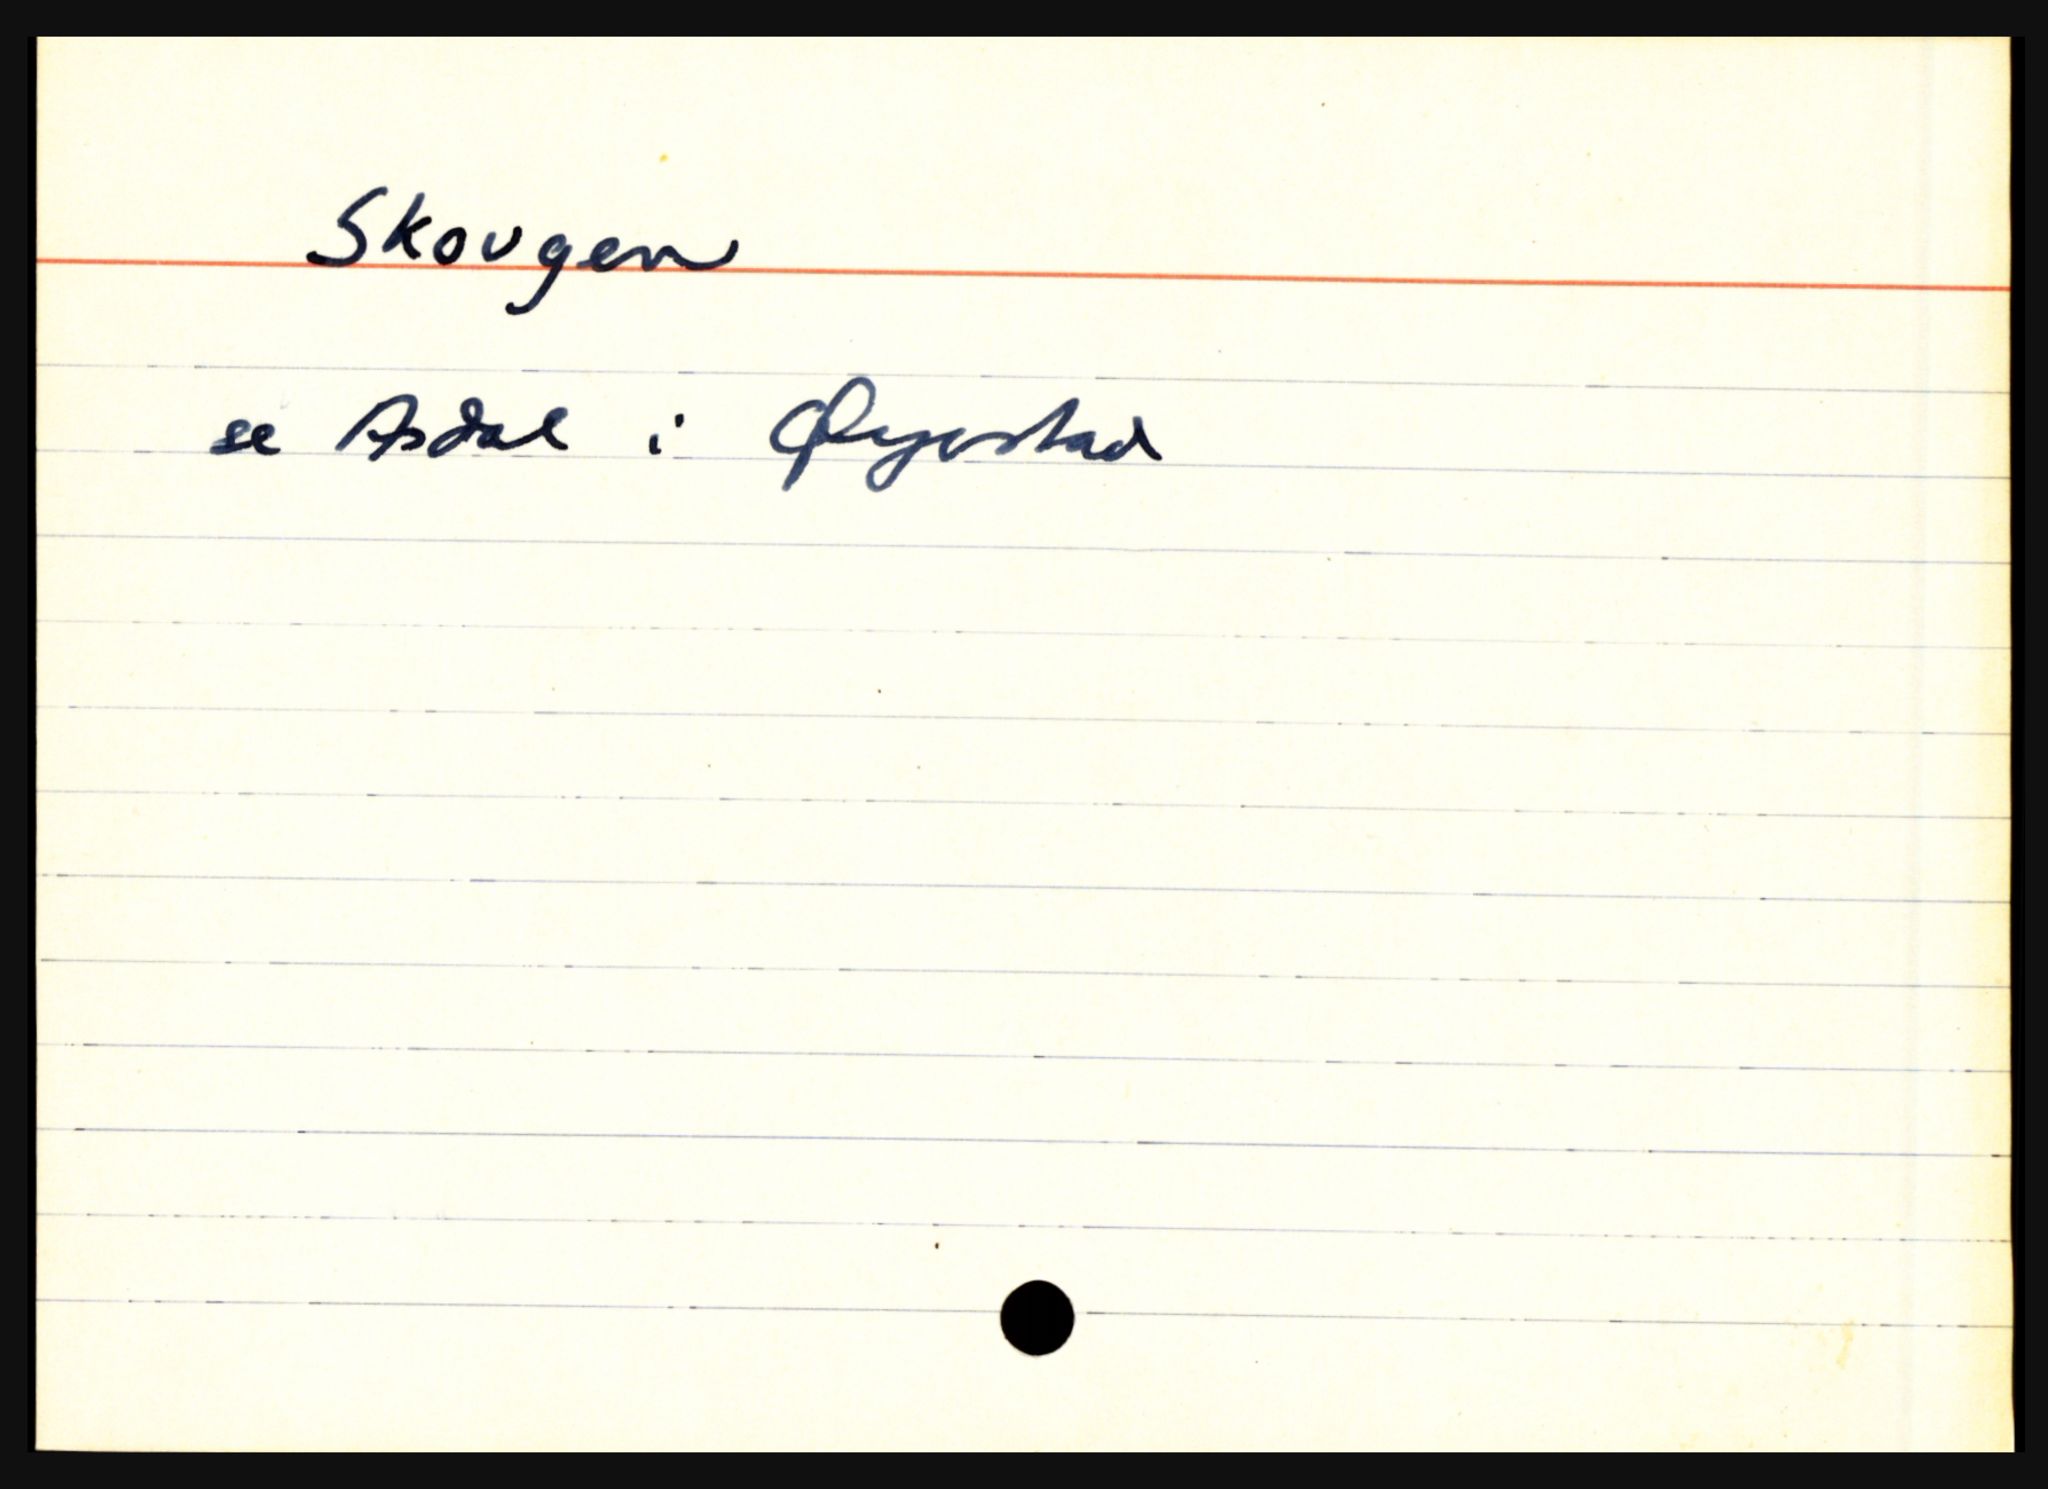 Skovgen
se Asdal i Øyestad